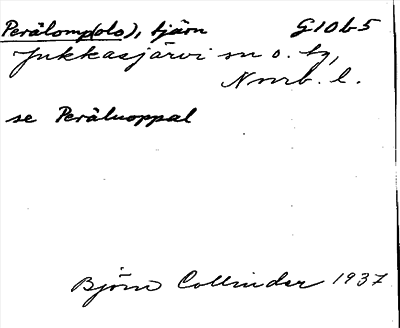 Perälomp(olo), tjärn G10b5
Jukkasjärvi sn o. tg,
Norrb. l.
se Peräluoppal
Björn Collinder 1937